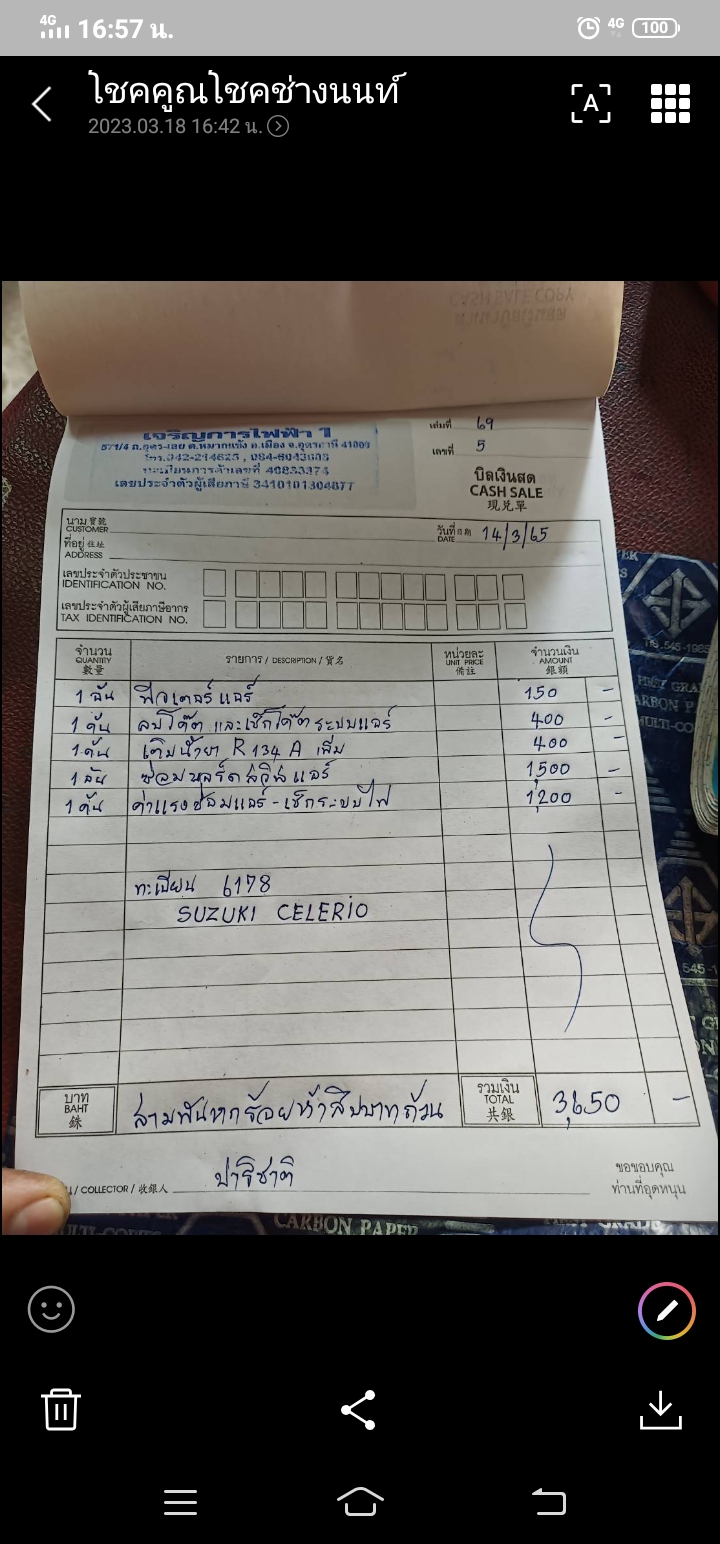 4G 16:57 น. 4G 100
โชคคูณโชคช่างนนท์
2023.03.18 16:42 น.
A
เจริญการไฟฟ้า 1
571/4 ถ.อุดร-เลย ต.หมากแข้ง อ.เมือง จ.อุดรธานี 41000
โทร.042-214625 , 084-6043605
ทะเบียนการค้าเลขที่ 40833374
เลขประจำตัวผู้เสียภาษี 3410101304877
เล่มที่ 69
เลขที่ 5
บิลเงินสด
CASH SALE
現兑單
นาม 寶號
CUSTOMER
วันที่ 日期 14/3/65
DATE
ที่อยู่ 住址
ADDRESS
เลขประจำตัวประชาชน
IDENTIFICATION NO.
เลขประจำตัวผู้เสียภาษีอากร
TAX IDENTIFICATION NO.
จำนวน รายการ / DESCRIPTION / 貨名 หน่วยละ จำนวนเงิน
QUANTITY UNIT PRICE AMOUNT
數量 備註 銀額
1 อัน ฟิวเตอร์แอร์ 150 -
1 คัน ลบโค๊ต และเช็กโค๊ตระบบแอร์ 400 -
1 คัน เติมน้ำยา R 134 A เพิ่ม 400 -
1 อัน ซ่อมบอร์ดสวิชแอร์ 1,500 -
1 คัน ค่าแรงซ่อมแอร์ - เช็กระบบไฟ 1,200 -
ทะเบียน 6178
SUZUKI CELERIO
บาท
BAHT
銖
สามพันหกร้อยห้าสิบบาทถ้วน
รวมเงิน
TOTAL
共銀
3,650 -
/ COLLECTOR / 收銀人 ปาริชาติ
ขอขอบคุณ
ท่านที่อุดหนุน
CARBON PAPER